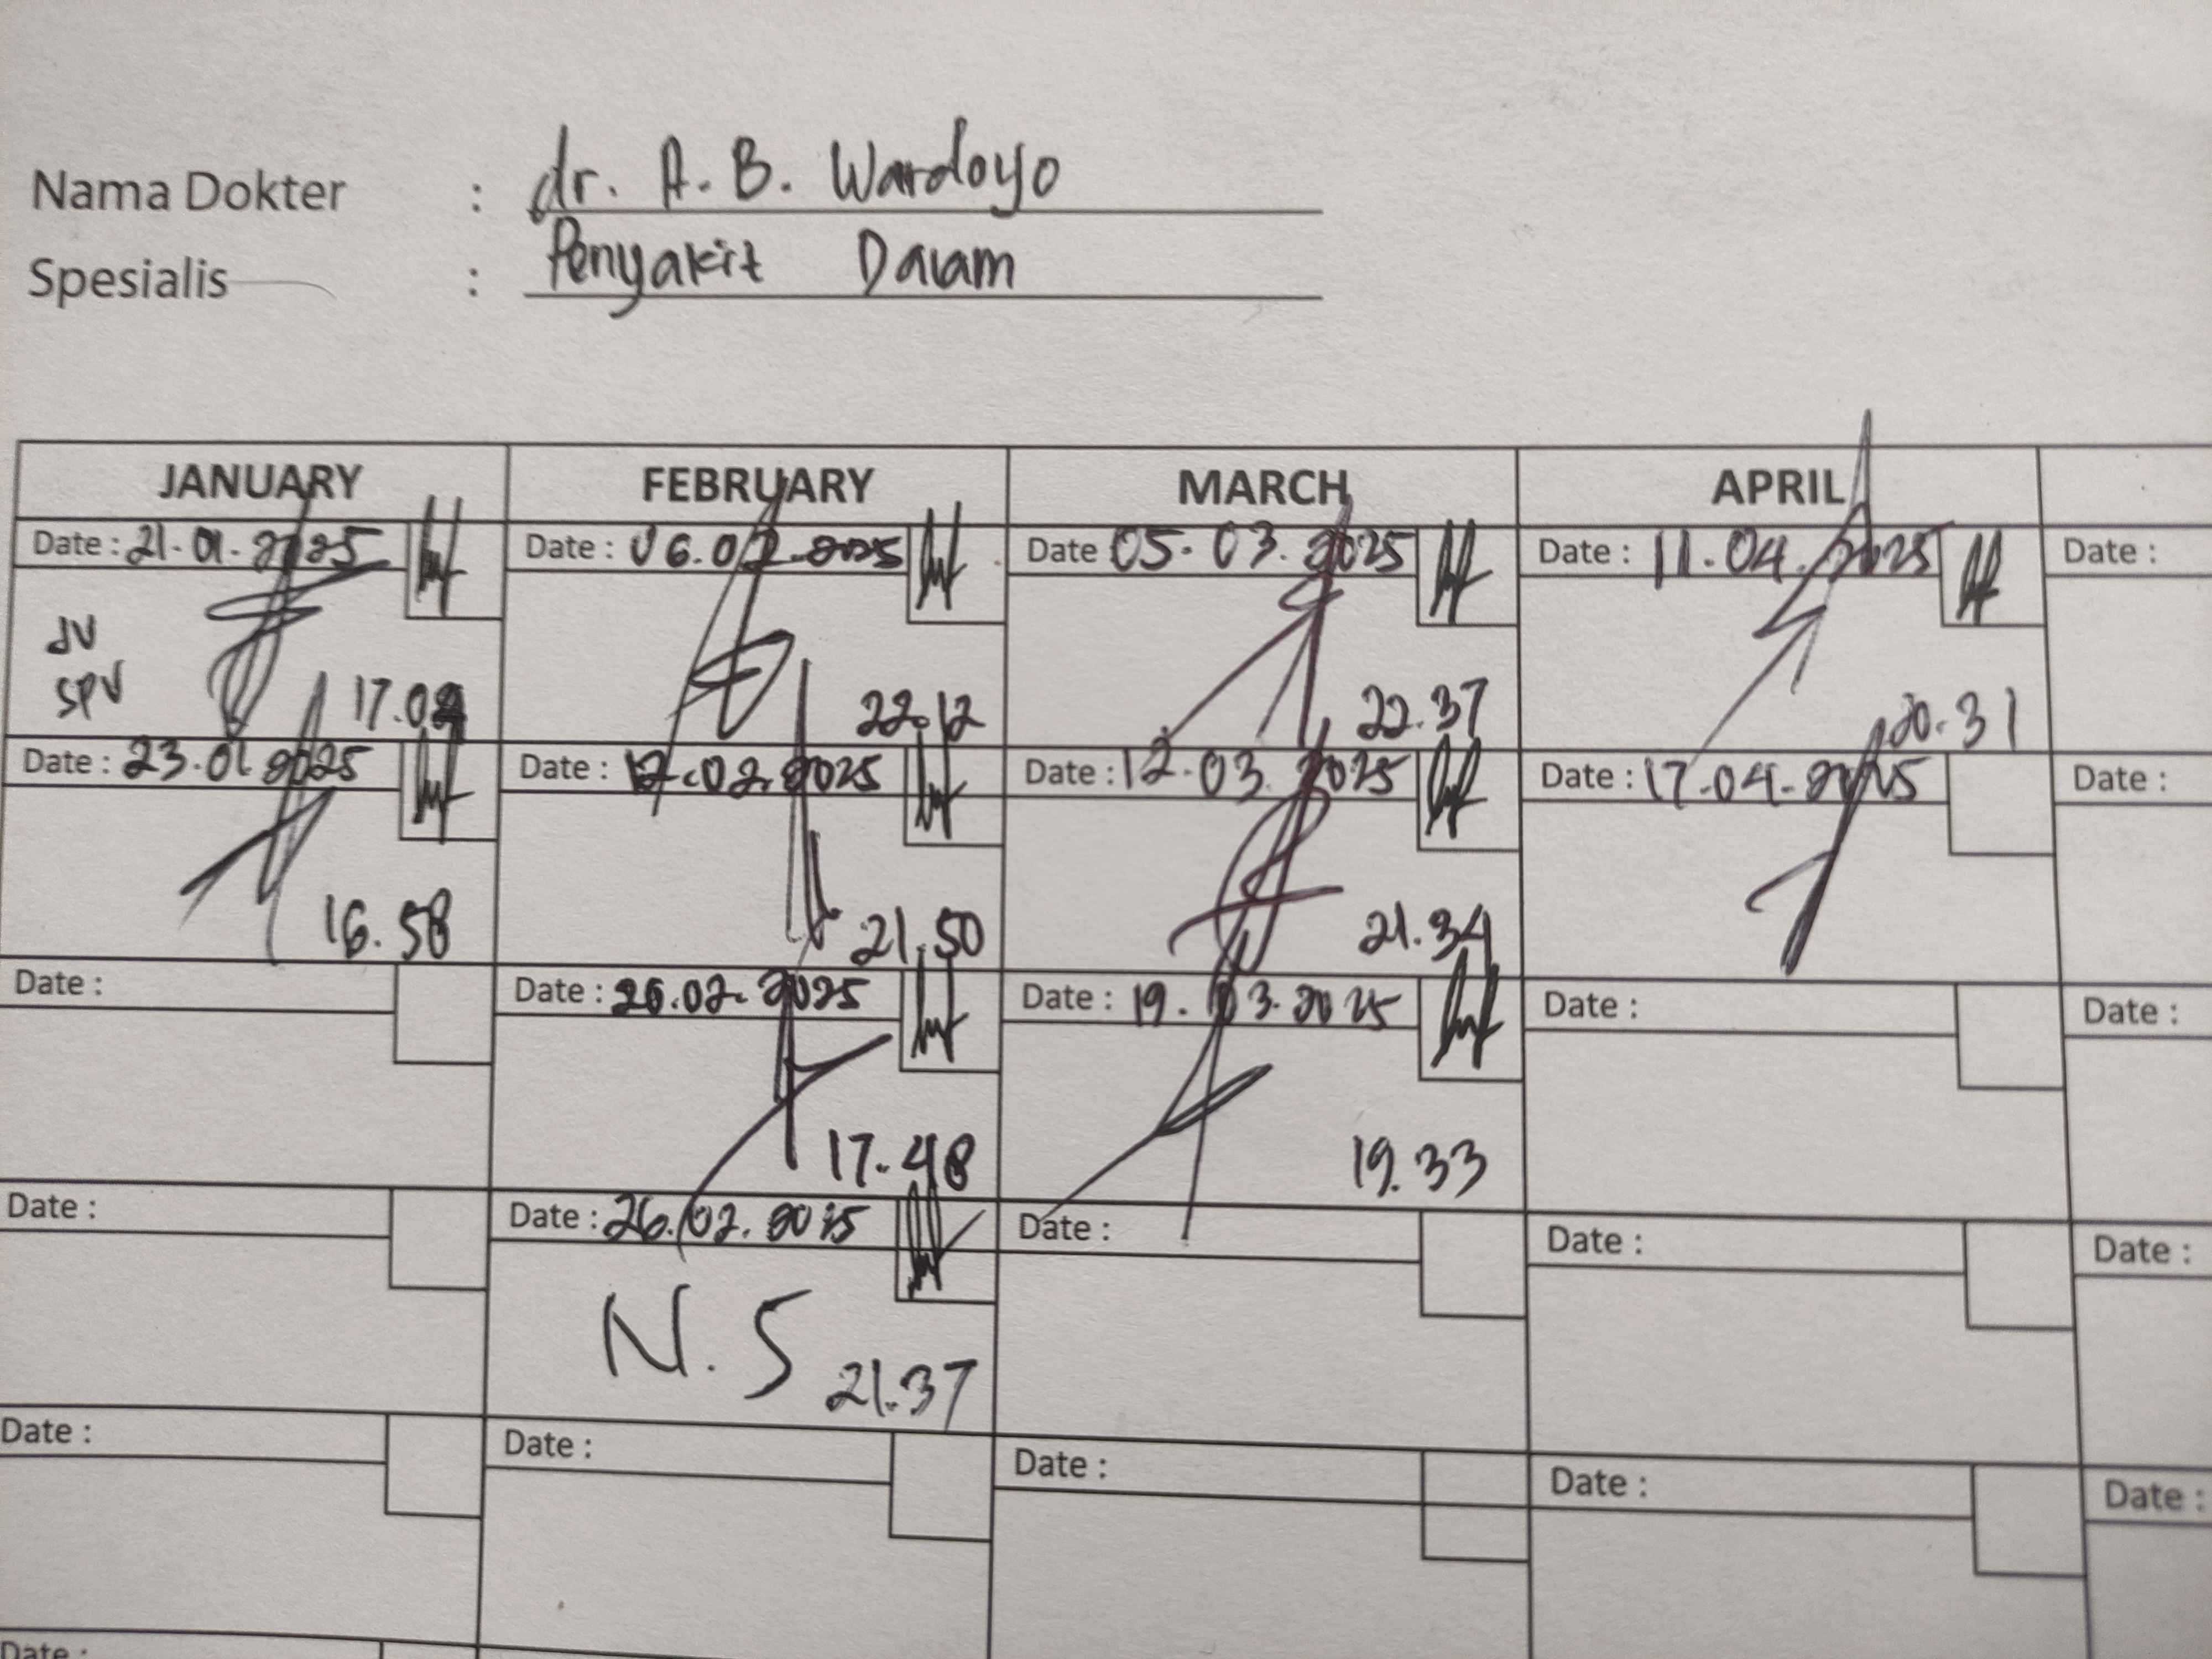 Nama Dokter : dr. A. B. Wardoyo
Spesialis : Penyakit Dalam
JANUARY FEBRUARY MARCH APRIL
Date : 21.01.2025 Date : 06.02.2025 Date 05.03.2025 Date : 11.04.2025 Date :
JV
SPV
17.09 22.12 22.37 20.31
Date : 23.01.2025 Date : 12.02.2025 Date : 12.03.2025 Date : 17.04.2025 Date :
16.58 21.50 21.34
Date : Date : 26.02.2025 Date : 19.03.2025 Date : Date :
17.48 19.33
Date : Date : 26.02.2025 Date : Date : Date :
N.S 21.37
Date : Date : Date : Date : Date :
Date :